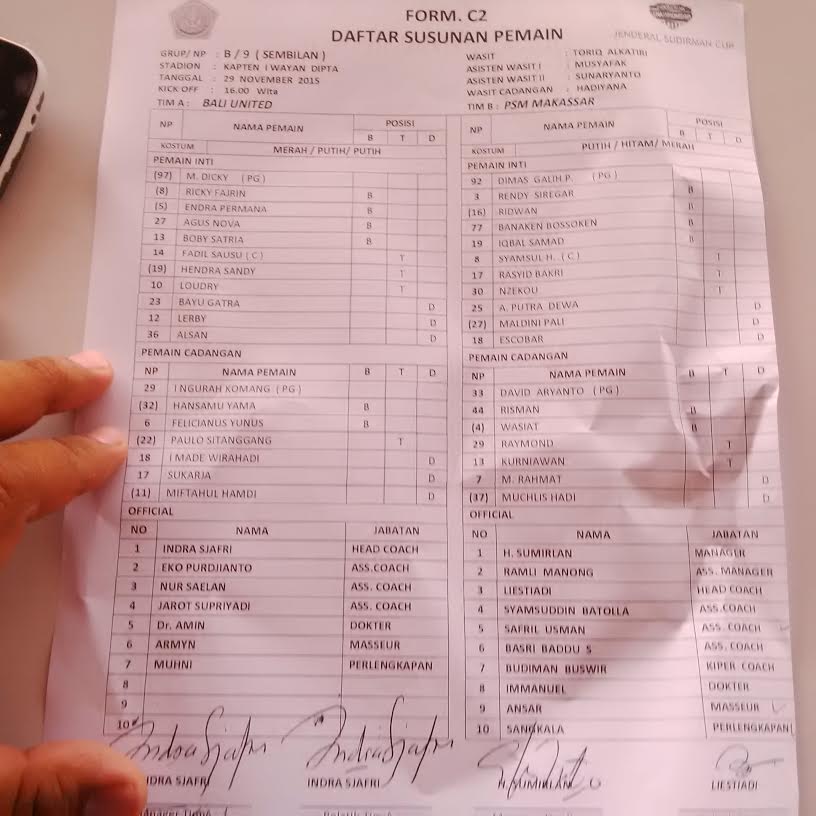 FORM. C2
DAFTAR SUSUNAN PEMAIN
JENDERAL SUDIRMAN CUP
GRUP/ NP : B / 9 ( SEMBILAN )
STADION : KAPTEN I WAYAN DIPTA
TANGGAL : 29 NOVEMBER 2015
KICK OFF : 16.00 Wita
TIM A : BALI UNITED
WASIT : TORIQ ALKATIRI
ASISTEN WASIT I : MUSYAFAK
ASISTEN WASIT II : SUNARYANTO
WASIT CADANGAN : HADIYANA
TIM B : PSM MAKASSAR
NP NAMA PEMAIN POSISI
B T D
KOSTUM MERAH / PUTIH/ PUTIH
PEMAIN INTI
(97) M. DICKY ( PG )
(8) RICKY FAJRIN B
(5) ENDRA PERMANA B
27 AGUS NOVA B
13 BOBY SATRIA B
14 FADIL SAUSU ( C ) T
(19) HENDRA SANDY T
10 LOUDRY T
23 BAYU GATRA D
12 LERBY D
36 ALSAN D
PEMAIN CADANGAN
NP NAMA PEMAIN B T D
29 I NGURAH KOMANG ( PG )
(32) HANSAMU YAMA B
6 FELICIANUS YUNUS B
(22) PAULO SITANGGANG T
18 I MADE WIRAHADI D
17 SUKARJA D
(11) MIFTAHUL HAMDI D
OFFICIAL
NO NAMA JABATAN
1 INDRA SJAFRI HEAD COACH
2 EKO PURDJIANTO ASS.COACH
3 NUR SAELAN ASS. COACH
4 JAROT SUPRIYADI ASS. COACH
5 Dr. AMIN DOKTER
6 ARMYN MASSEUR
7 MUHNI PERLENGKAPAN
8
9
10
INDRA SJAFRI
INDRA SJAFRI
NP NAMA PEMAIN POSISI
B T D
KOSTUM PUTIH / HITAM/ MERAH
PEMAIN INTI
92 DIMAS GALIH P. ( PG )
3 RENDY SIREGAR B
(16) RIDWAN B
77 BANAKEN BOSSOKEN B
19 IQBAL SAMAD B
8 SYAMSUL H. ( C ) T
17 RASYID BAKRI T
30 NZEKOU T
25 A. PUTRA DEWA D
(27) MALDINI PALI D
18 ESCOBAR D
PEMAIN CADANGAN
NP NAMA PEMAIN B T D
33 DAVID ARYANTO ( PG )
44 RISMAN B
(4) WASIAT B
29 RAYMOND T
13 KURNIAWAN T
7 M. RAHMAT D
(37) MUCHLIS HADI D
OFFICIAL
NO NAMA JABATAN
1 H. SUMIRLAN MANAGER
2 RAMLI MANONG ASS. MANAGER
3 LIESTIADI HEAD COACH
4 SYAMSUDDIN BATOLLA ASS.COACH
5 SAFRIL USMAN ASS. COACH
6 BASRI BADDU S ASS. COACH
7 BUDIMAN BUSWIR KIPER COACH
8 IMMANUEL DOKTER
9 ANSAR MASSEUR
10 SANGKALA PERLENGKAPAN
H. SUMIRLAN
LIESTIADI